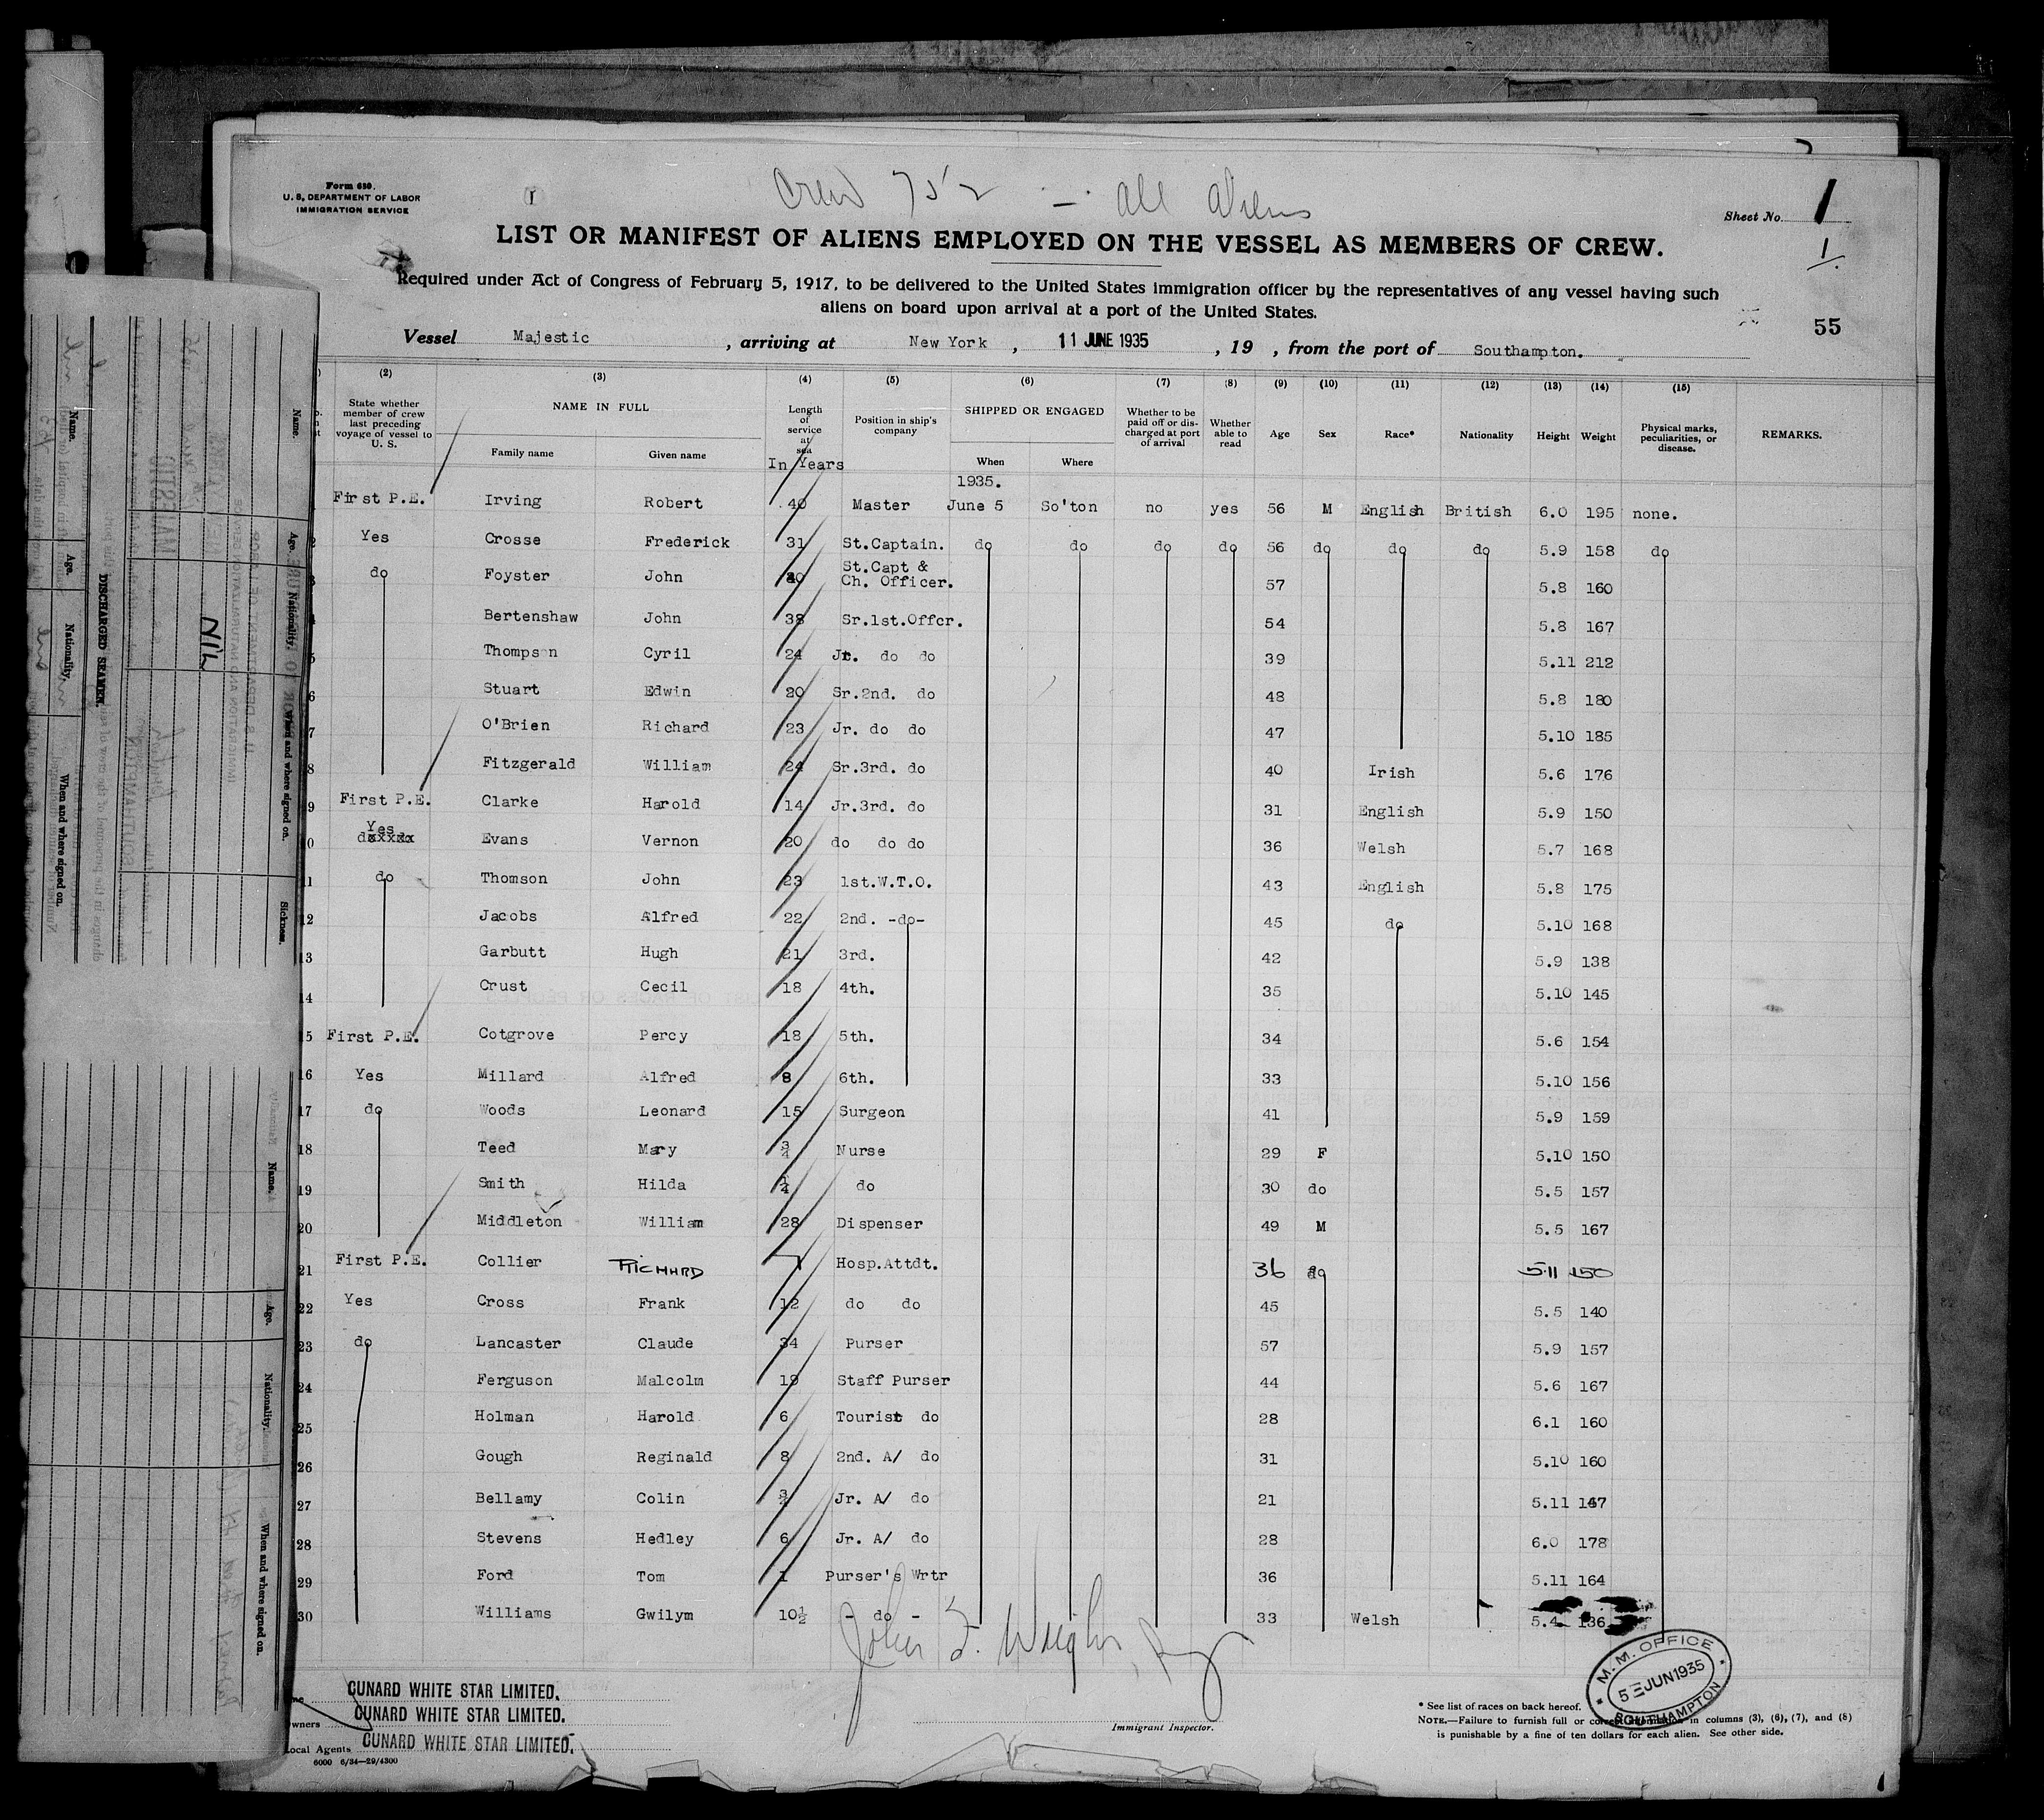 Form 680.
U. S. DEPARTMENT OF LABOR
IMMIGRATION SERVICE
Crew 752 - all Aliens
Sheet No. 1
1
LIST OR MANIFEST OF ALIENS EMPLOYED ON THE VESSEL AS MEMBERS OF CREW.
Required under Act of Congress of February 5, 1917, to be delivered to the United States immigration officer by the representatives of any vessel having such
aliens on board upon arrival at a port of the United States.
55
Vessel Majestic , arriving at New York , 11 JUNE 1935 , 19 , from the port of Southampton.
(2) (3) (4) (5) (6) (7) (8) (9) (10) (11) (12) (13) (14) (15)
State whether member of crew last preceding voyage of vessel to U. S. NAME IN FULL Family name Given name Length of service at sea In Years Position in ship's company SHIPPED OR ENGAGED When Where Whether to be paid off or discharged at port of arrival Whether able to read Age Sex Race* Nationality Height Weight Physical marks, peculiarities, or disease. REMARKS.
1935.
First P.E. Irving Robert 40 Master June 5 So'ton no yes 56 M English British 6.0 195 none.
2 Yes Crosse Frederick 31 St.Captain. do do do do 56 do do do 5.9 158 do
3 do Foyster John 40 St.Capt & Ch. Officer. 57 5.8 160
4 Bertenshaw John 38 Sr.1st.Offcr. 54 5.8 167
5 Thompson Cyril 24 Jr. do do 39 5.11 212
6 Stuart Edwin 20 Sr.2nd. do 48 5.8 180
7 O'Brien Richard 23 Jr. do do 47 5.10 185
8 Fitzgerald William 24 Sr.3rd. do 40 Irish 5.6 176
9 First P.E. Clarke Harold 14 Jr.3rd. do 31 English 5.9 150
10 Yes Evans Vernon 20 do do do 36 Welsh 5.7 168
11 do Thomson John 23 1st.W.T.O. 43 English 5.8 175
12 Jacobs Alfred 22 2nd. -do- 45 do 5.10 168
13 Garbutt Hugh 21 3rd. 42 5.9 138
14 Crust Cecil 18 4th. 35 5.10 145
15 First P.E. Cotgrove Percy 18 5th. 34 5.6 154
16 Yes Millard Alfred 8 6th. 33 5.10 156
17 do Woods Leonard 15 Surgeon 41 5.9 159
18 Teed Mary 3/4 Nurse 29 F 5.10 150
19 Smith Hilda 1/4 do 30 do 5.5 157
20 Middleton William 28 Dispenser 49 M 5.5 167
21 First P.E. Collier RICHARD 7 Hosp.Attdt. 36 do 5.11 150
22 Yes Cross Frank 12 do do 45 5.5 140
23 do Lancaster Claude 34 Purser 57 5.9 157
24 Ferguson Malcolm 19 Staff Purser 44 5.6 167
25 Holman Harold 6 Tourist do 28 6.1 160
26 Gough Reginald 8 2nd. A/ do 31 5.10 160
27 Bellamy Colin 3/4 Jr. A/ do 21 5.11 147
28 Stevens Hedley 6 Jr. A/ do 28 6.0 178
29 Ford Tom 1 Purser's Wrtr 36 5.11 164
30 Williams Gwilym 10½ - do - 33 Welsh 5.4 136
John F. Wright
Immigrant Inspector.
CUNARD WHITE STAR LIMITED.
Owners CUNARD WHITE STAR LIMITED.
Local Agents CUNARD WHITE STAR LIMITED.
6000 6/34—29/4300
M. M. OFFICE
5 JUN 1935
SOUTHAMPTON
* See list of races on back hereof.
NOTE.—Failure to furnish full or correct information in columns (3), (6), (7), and (8)
is punishable by a fine of ten dollars for each alien. See other side.
DISCHARGED SEAMEN.
Name. Age. Nationality. When and where signed on.
Name. Age. Nationality. When and where signed on. Sickness.
Nil
MAJESTIC
SOUTHAMPTON
Name. Age. Nationality. When and where signed on.